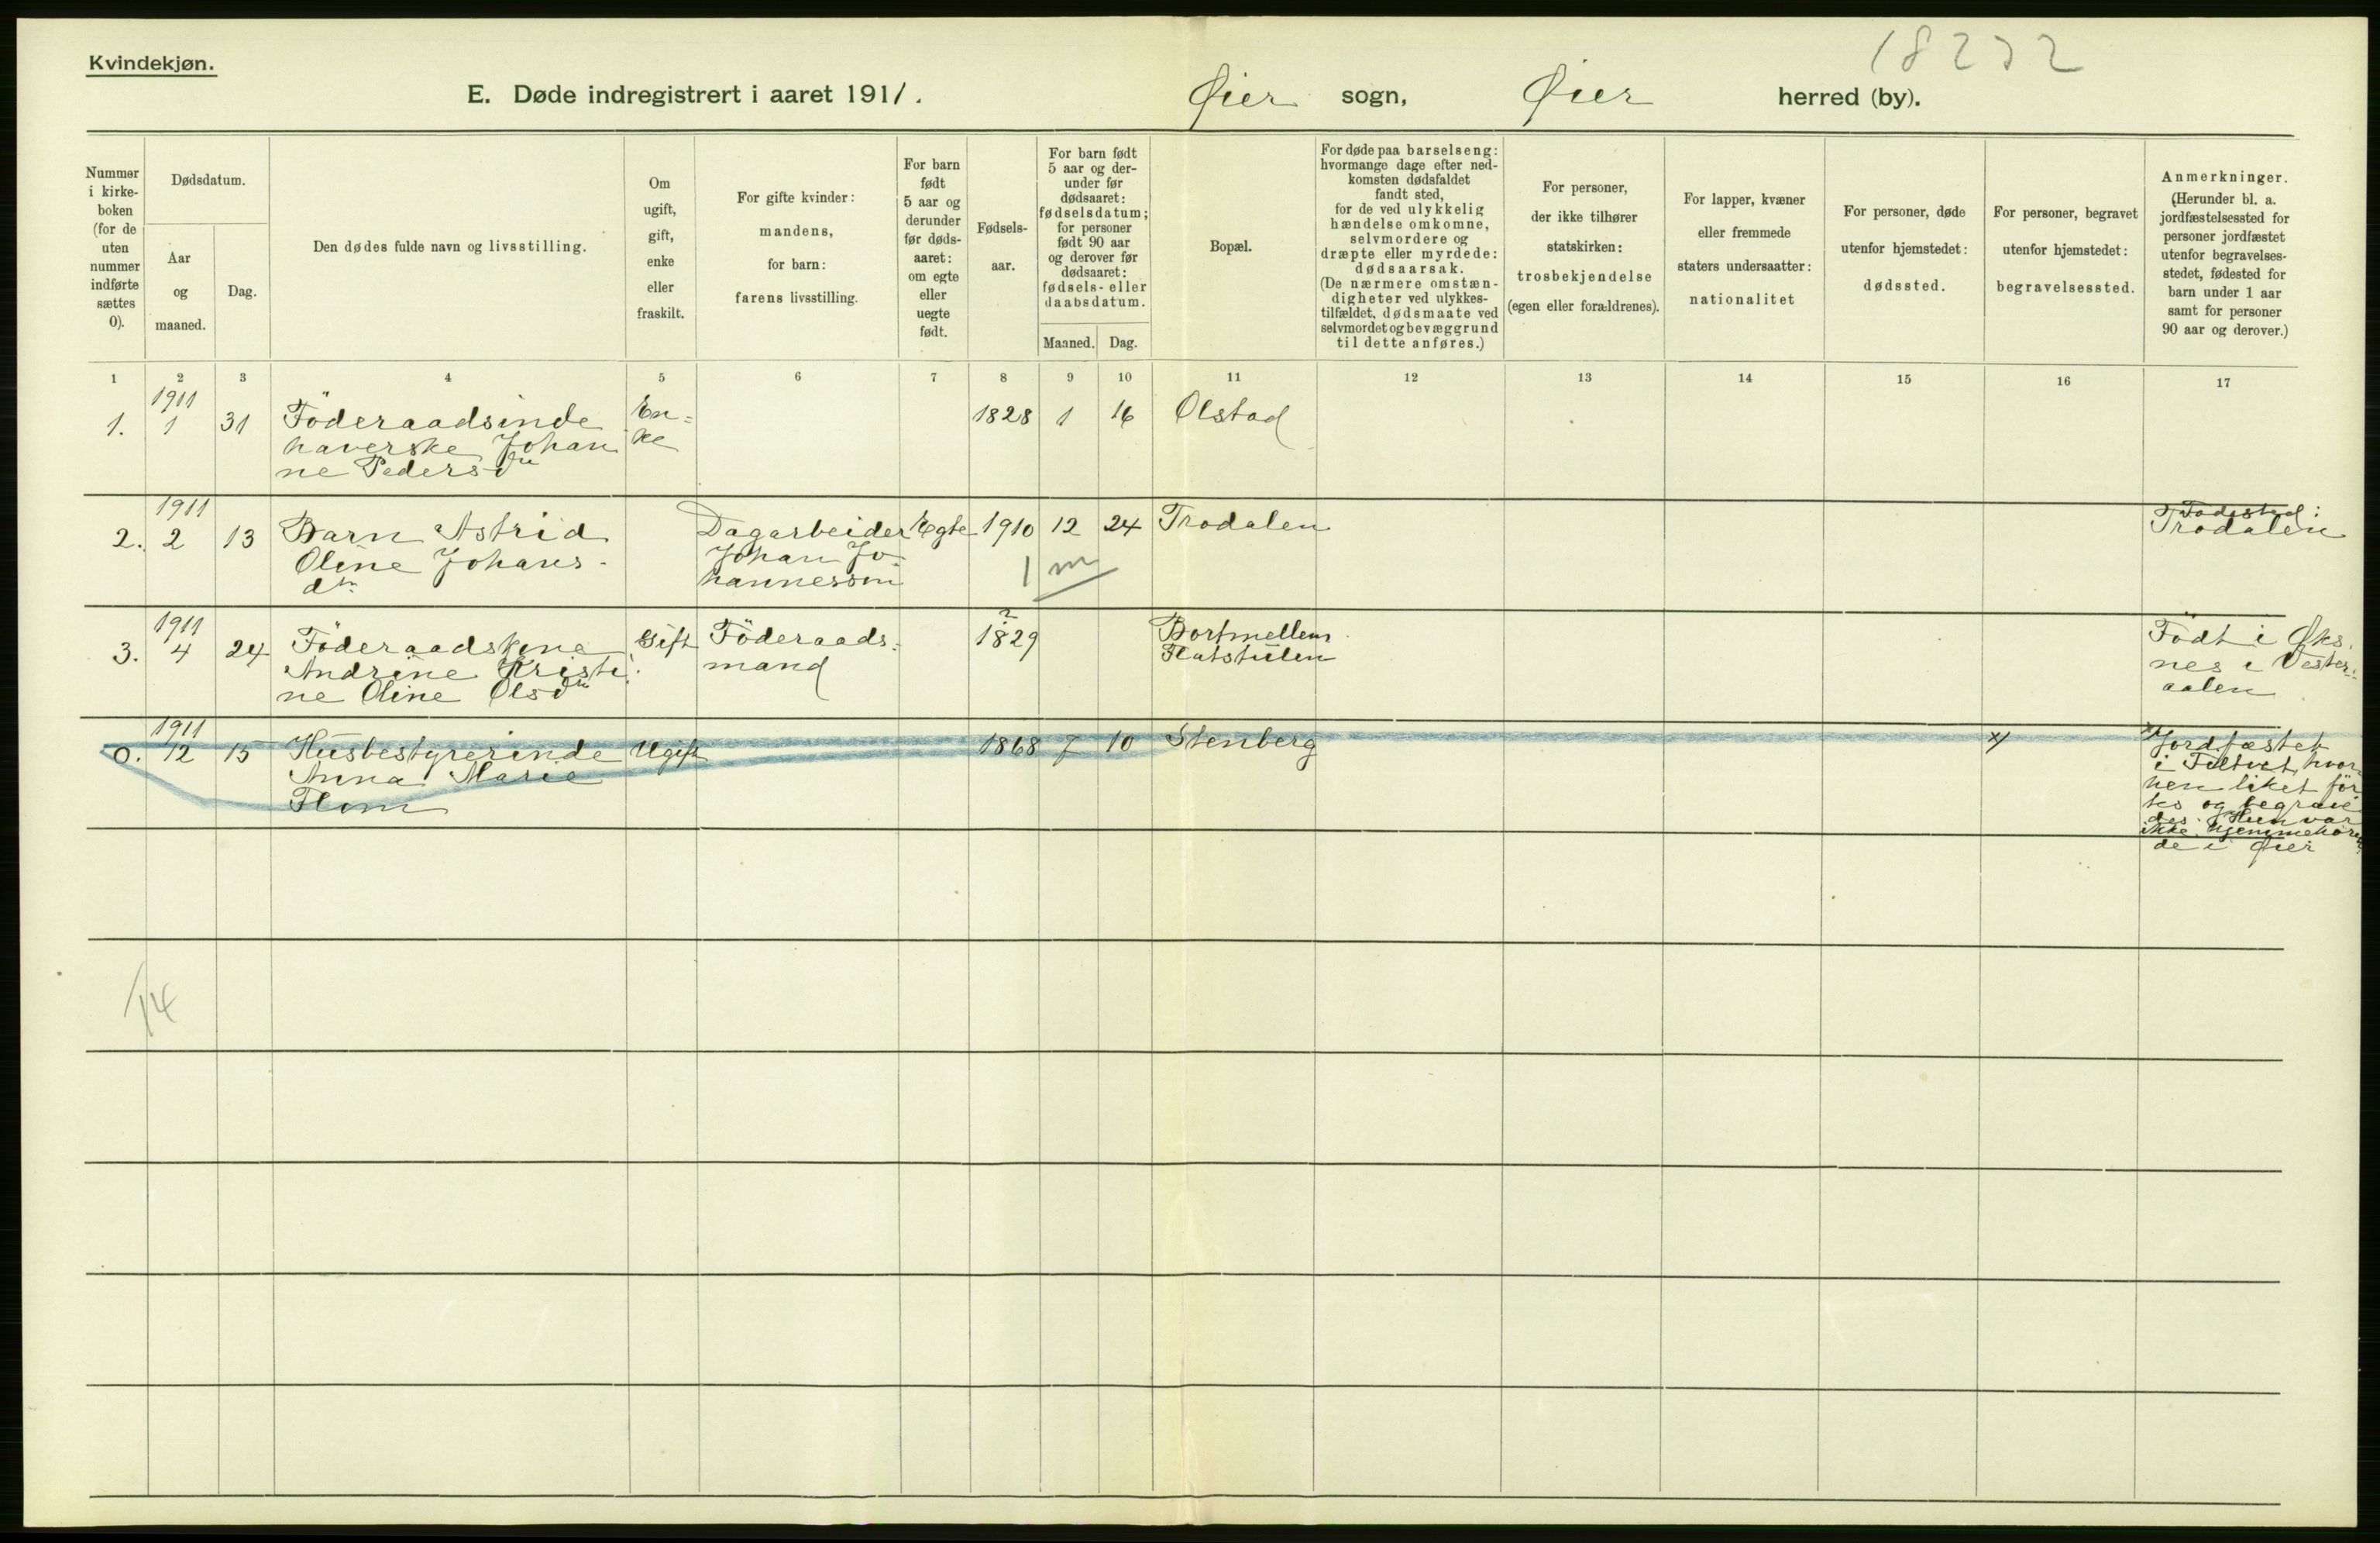 18232
Kvindekjøn.
E. Døde indregistrert i aaret 1911. Øier sogn, Øier herred (by).
Nummer
i kirke-
boken
(for de
uten
nummer
indførte
sættes
0).
Dødsdatum.
Aar
og
maaned.
Dag.
Den dødes fulde navn og livsstilling.
Om
ugift,
gift,
enke
eller
fraskilt.
For gifte kvinder:
mandens,
for barn:
farens livsstilling.
For barn
født
5 aar og
derunder
før døds-
aaret:
om egte
eller
uegte
født.
Fødsels-
aar.
For barn født
5 aar og der-
under før
dødsaaret:
fødselsdatum;
for personer
født 90 aar
og derover før
dødsaaret:
fødsels- eller
daabsdatum.
Maaned. Dag.
Bopæl.
For døde paa barselseng:
hvormange dage efter ned-
komsten dødsfaldet
fandt sted,
for de ved ulykkelig
hændelse omkomne,
selvmordere og
dræpte eller myrdede:
dødsaarsak.
(De nærmere omstæn-
digheter ved ulykkes-
tilfældet, dødsmaate ved
selvmordet og bevæggrund
til dette anføres.)
For personer,
der ikke tilhører
statskirken:
trosbekjendelse
(egen eller forældrenes).
For lapper, kvæner
eller fremmede
staters undersaatter:
nationalitet
For personer, døde
utenfor hjemstedet:
dødssted.
For personer, begravet
utenfor hjemstedet:
begravelsessted.
Anmerkninger.
(Herunder bl. a.
jordfæstelsessted for
personer jordfæstet
utenfor begravelses-
stedet, fødested for
barn under 1 aar
samt for personer
90 aar og derover.)
1 2 3 4 5 6 7 8 9 10 11 12 13 14 15 16 17
1911
1. 1 31 Föderaadsinde En= 1828 1 16 Olstad
haverske Johan ke
ne Pedersdtr
1911 Födested:
2. 2 13 Barn Astrid Dagarbeider Egte 1910 12 24 Trodalen Trodalen
Oline Johans- Johan Jo-
dtr. hannessen 1 m
1911 ?
3. 4 24 Föderaadskone Gift Föderaads- 1829 Bortmellem Födt i Øks-
Andrine Kristi- mand Flatstulen nes i Vester-
ne Oline Olsdtr aalen
1911
0. 12 15 Husbestyrerinde Ugift 1868 7 10 Stenberg x) x) Jordfæstet
Anna Marie i Tiltvet, hvor
Flom hen liket för
tes og begrave
des. Hun var
ikke hjemmehören
de i Øier
14